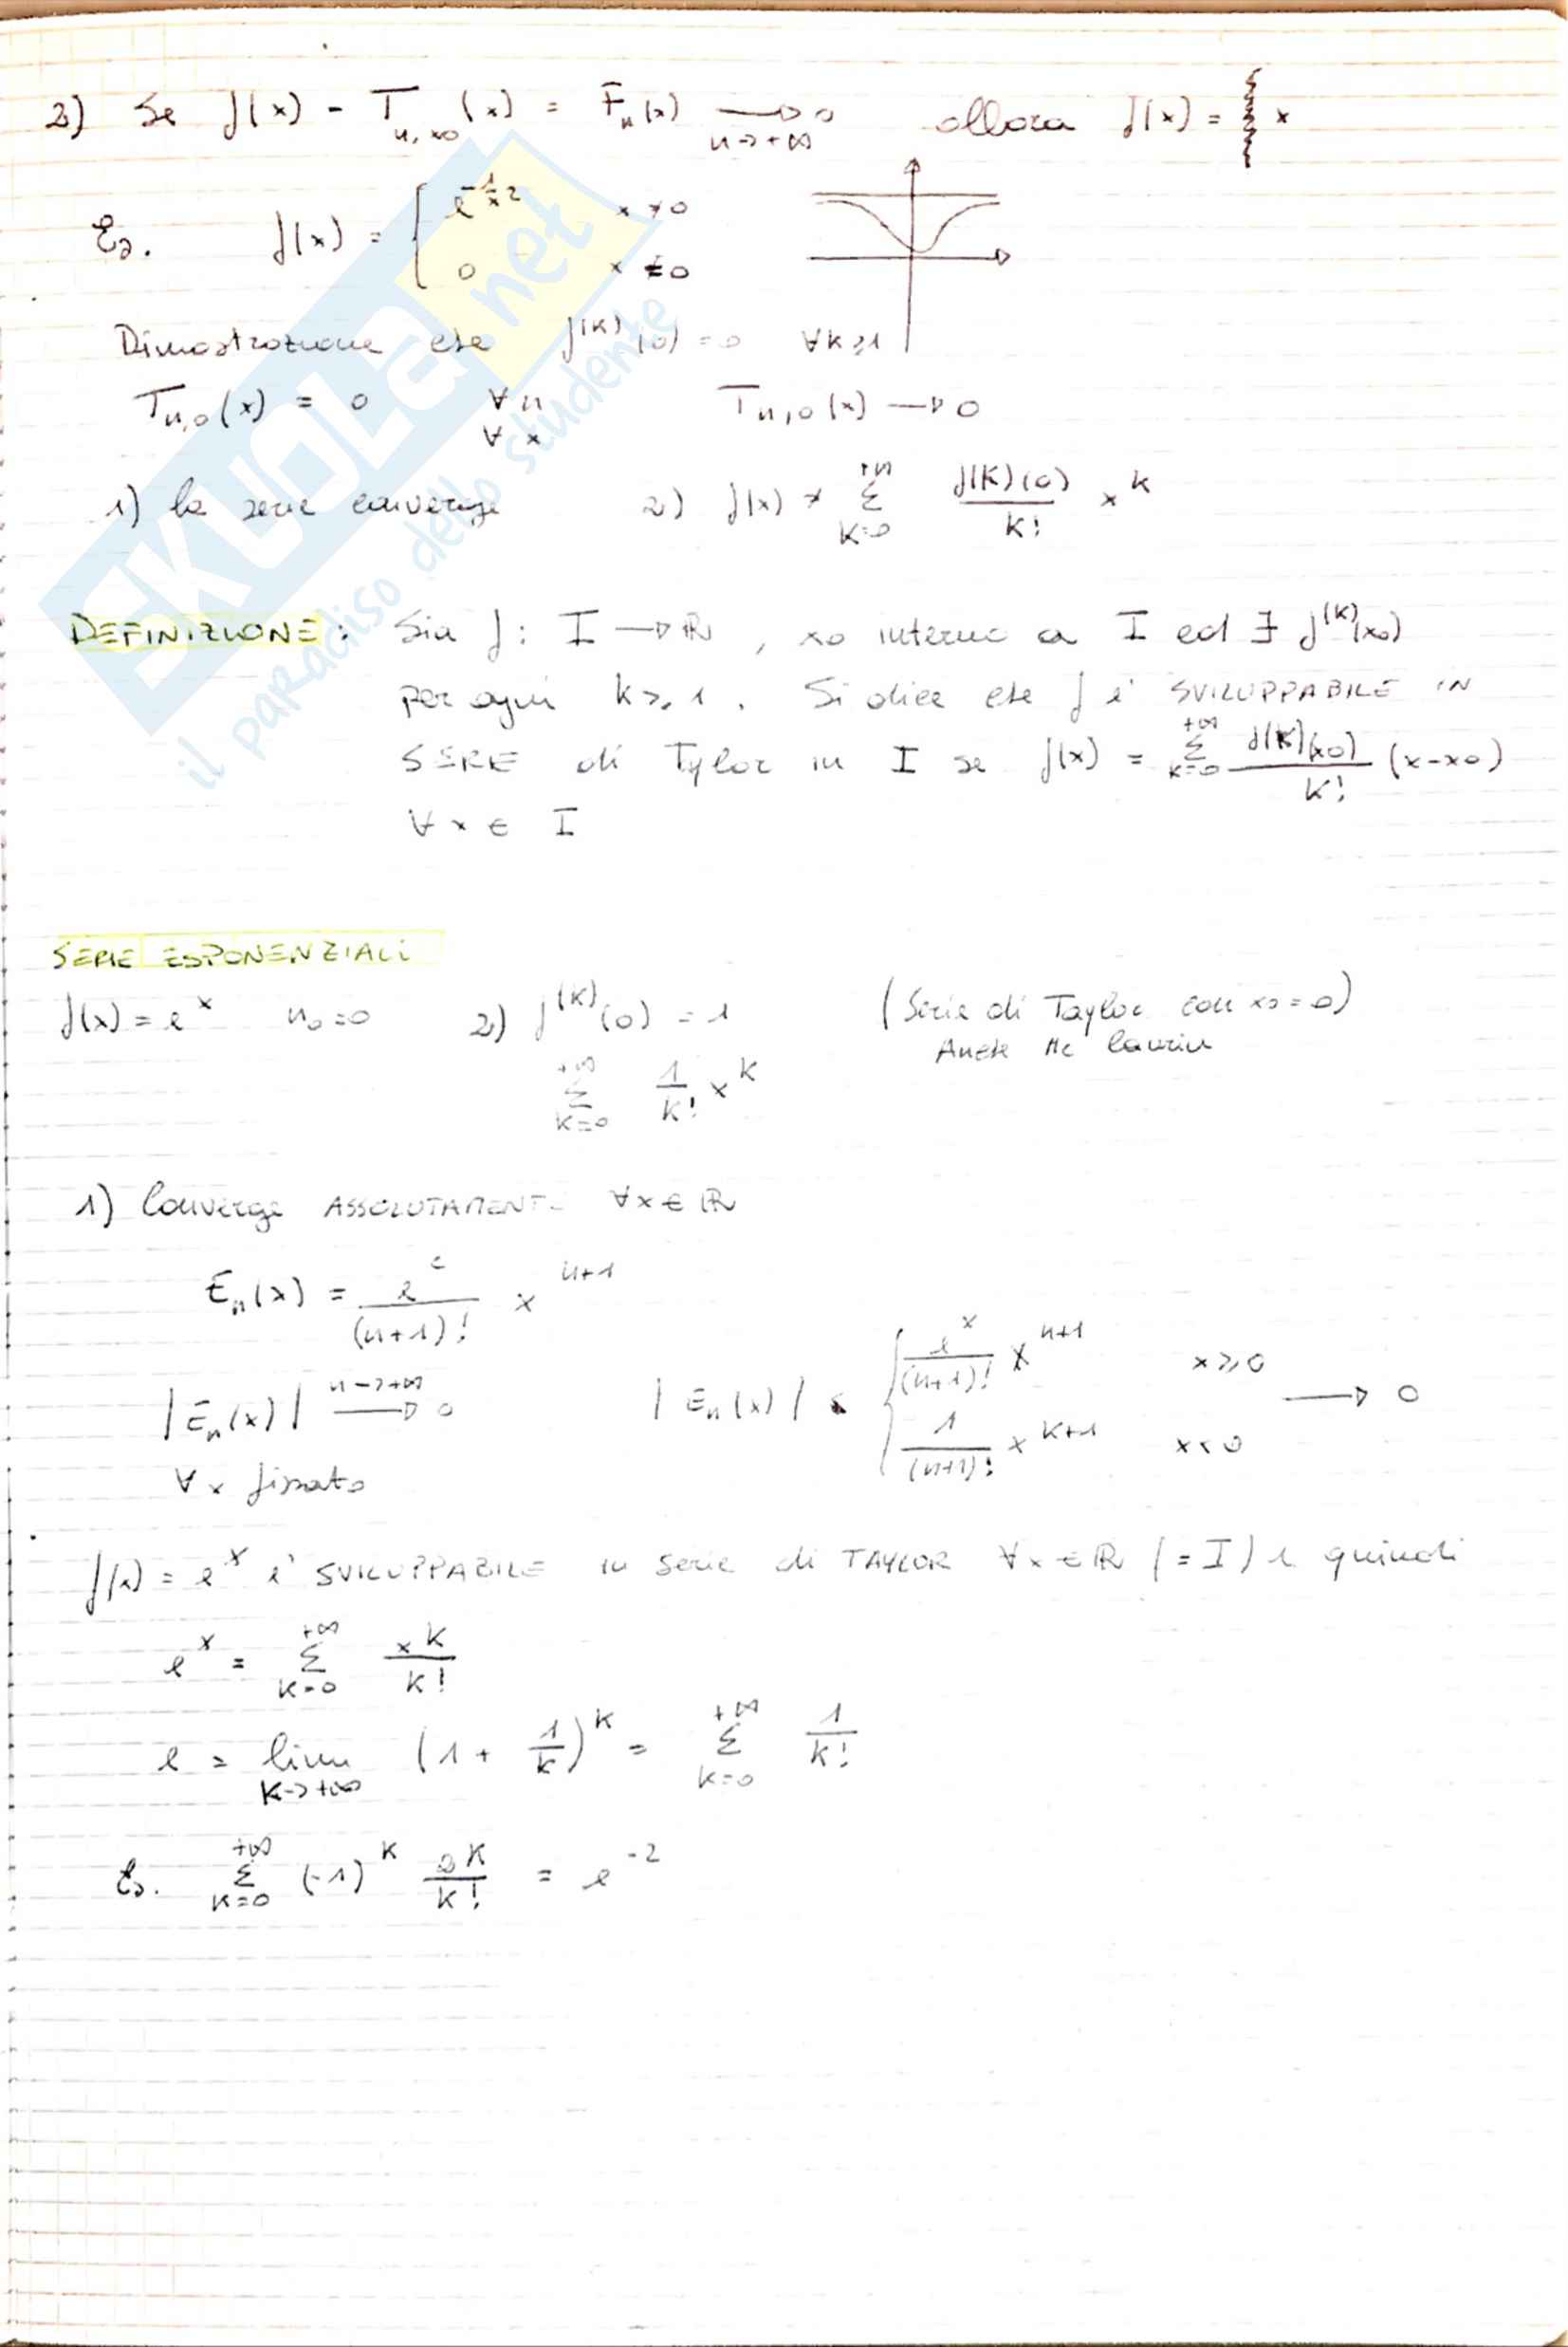 2) Se f(x) - T_{n,x0}(x) = E_n(x) →_{n→+∞} 0 allora f(x) = x
Es. f(x) = { e^{-1/x²} x ≠ 0
0 x = 0
Dimostrazione che f^{(k)}(0) = 0 ∀k≥1
T_{n,0}(x) = 0 ∀n ∀x T_{n,0}(x) → 0
1) la serie converge 2) f(x) ≠ Σ_{k=0}^{+∞} f(k)(0)/k! x^k
DEFINIZIONE: Sia f: I → ℝ, x0 interno a I ed ∃ f^{(k)}(x0)
per ogni k≥1. Si dice che f è SVILUPPABILE IN
SERIE di Tylor in I se f(x) = Σ_{k=0}^{+∞} f(k)(x0)/k! (x-x0)
∀x ∈ I
SERIE ESPONENZIALI
f(x) = e^x n0=0 2) f^{(k)}(0) = 1 (Serie di Taylor con x0=0)
Anche Mc laurin
Σ_{k=0}^{+∞} 1/k! x^k
1) Converge ASSOLUTAMENTE ∀x∈ℝ
E_n(x) = e^c/(n+1)! x^{n+1}
|E_n(x)| →^{n→+∞} 0 |E_n(x)| ≤ { e^x/(n+1)! x^{n+1} x≥0
1/(n+1)! x^{k+1} x<0 → 0
∀x fissato
f(x) = e^x è SVILUPPABILE in serie di TAYLOR ∀x∈ℝ (=I) e quindi
e^x = Σ_{k=0}^{+∞} x^k/k!
e = lim_{k→+∞} (1 + 1/k)^k = Σ_{k=0}^{+∞} 1/k!
Es. Σ_{k=0}^{+∞} (-1)^k 2^k/k! = e^{-2}
SKUOLA.net
il paradiso dello studente